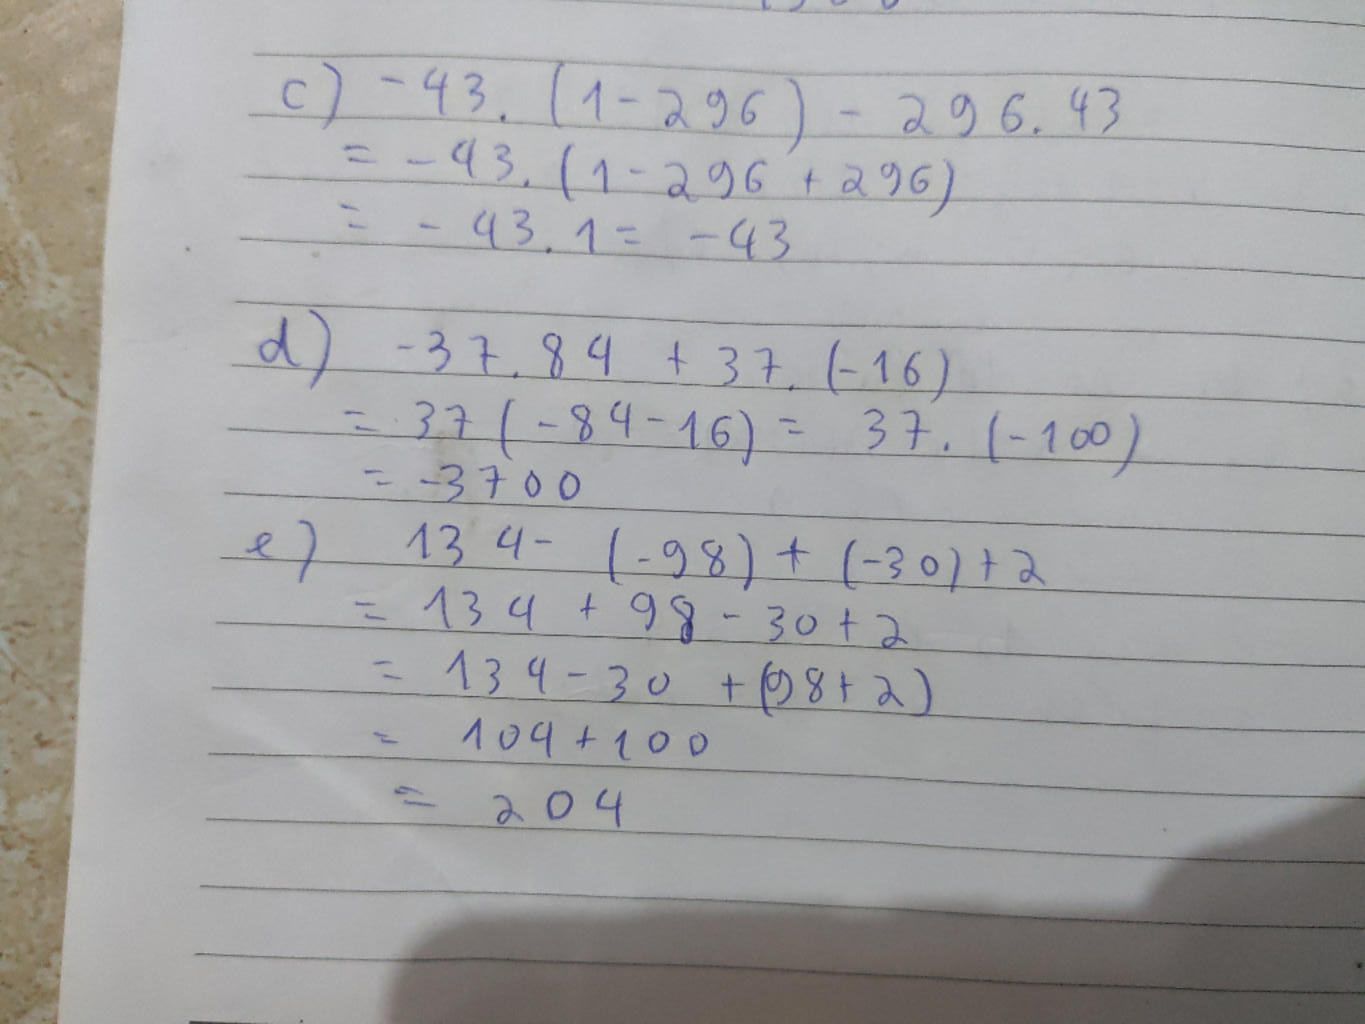 c) -43. (1 - 296) - 296. 43
= -43. (1 - 296 + 296)
= -43. 1 = -43
d) -37. 84 + 37. (-16)
= 37 (-84 - 16) = 37. (-100)
= -3700
e) 134 - (-98) + (-30) + 2
= 134 + 98 - 30 + 2
= 134 - 30 + (98 + 2)
= 104 + 100
= 204